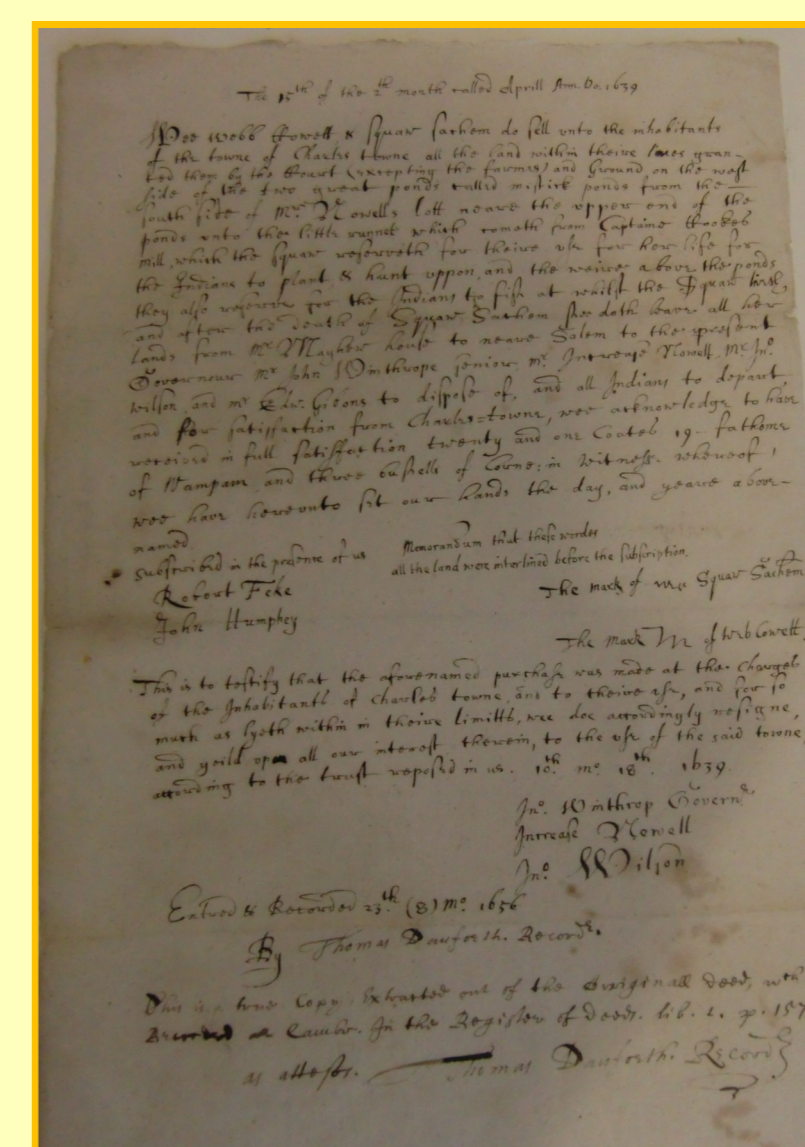 The 15th of the 2th month called Aprill Ann. Do. 1639
Wee Webb Cowett, & Squaw Sachem do sell vnto the inhabitants
of the towne of Charles towne all the land within theire lines gran-
ted them by the Court (excepting the farmes) and Ground, on the west
side of the two great ponds called mistick ponds from the
south side of Mr. Nowells lott neare the upper end of the
ponds vnto the little runnet which cometh from Captaine Cookes
mill, which the squaw reserveth for theire vse for her life for
the Indians to plant, & hunt vppon, and the weire above the ponds
they also reserve for the Indians to fish at whilst the Squaw liveth,
and after the death of Squaw Sachem shee doth leave all her
lands from Mr. Mayhew house to neare Salem to the present
Governour Mr John Winthrope senior, mr. Increase Nowell, Mr. Jno.
Wilson, and mr Edw. Gibons to dispose of, and all Indians to depart,
and for satisfaction from Charles-towne, wee acknowledge to have
received in full satisfaction twenty and one Coates 19. fathome
of Wampam, and three bushells of Corne: in witness. whereof,
wee have herevnto set our hands the day, and yeare above-
named.
Subscribed in the presence of us
Memorandum that these wordes
all the land were interlined before the subscription.
Robert Feke
John Humphey
The mark of Squaw Sachem
The mark of Web Cowett.
This is to testify that the aforenamed purchase was made at the charges
of the Inhabitants of Charles towne, and to theire vse, and for so
much as lyeth within in theire limitts, wee doe accordingly resigne,
and yeild vp all our interest therein, to the vse of the said towne,
according to the trust reposed in us. 10th. mo. 18th. 1639.
Jno. Winthrop Governr
Increase Nowell
Jno. Wilson
Entred & Recorded 23.th (8) mo. 1656
By Thomas Danforth. Recordr.
This is a true Copy Extracted out of the Originall Deed, wch
Recorded at Cambr. In the Register of Deeds. lib. 1. p. 157
as attests. Thomas Danforth. Recordr